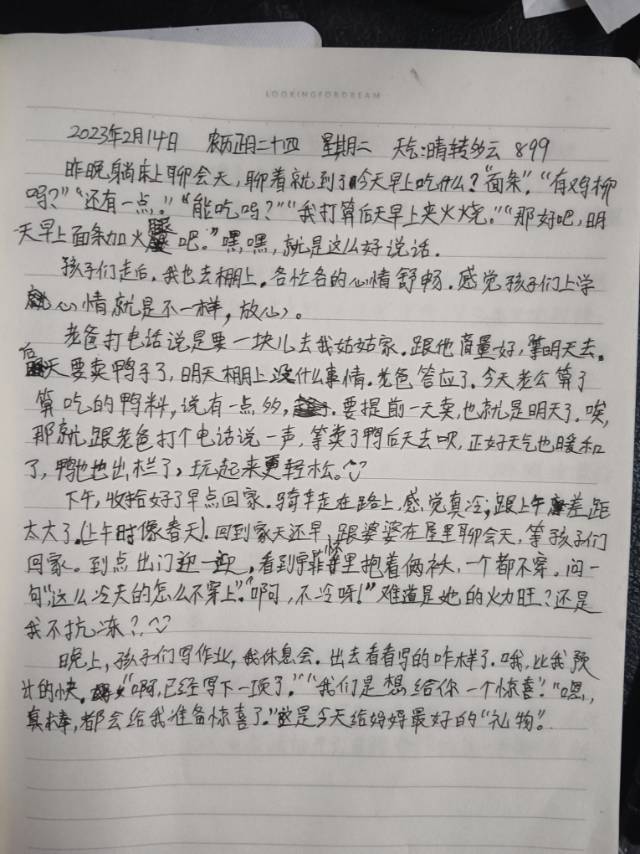 LOOKINGFORDREAM
2023年2月14日 农历正月二十四 星期二 天气:晴转多云 899
昨晚躺床上聊会天,聊着就到了今天早上吃什么?“面条”.“有鸡柳
吗?”“还有一点!”“能吃吗?”“我打算后天早上夹火烧。”“那好吧,明
天早上面条加火腿吧。”嘿嘿,就是这么好说话.
孩子们走后.我也去棚上.各忙各的心情舒畅.感觉孩子们上学
心情就是不一样,放心。
老爸打电话说是要一块儿去我姑姑家.跟他商量好,等明天去。
后天要卖鸭子了,明天棚上没什么事情.老爸答应了.今天老公算了
算吃的鸭料,说有一点多,要提前一天卖,也就是明天了.唉,
那就跟老爸打个电话说一声,等卖了鸭后天去呗,正好天气也暖和
了,鸭也出栏了,玩起来更轻松。
下午,收拾好了早点回家.骑车走在路上,感觉真冷,跟上午差距
太大了.(上午时像春天).回到家天还早,跟婆婆在屋里聊会天,等孩子们
回家。到点出门迎一迎,看到怀里抱着俩袄,一个都不穿.问一
句“这么冷天的怎么不穿上”.“啊,不冷呀!”难道是她的火力旺?还是
我不抗冻?
晚上,孩子们写作业,我休息会.出去看看写的咋样了.哦,比我预
计的快.“啊,已经写下一项了.”“我们是想给你一个惊喜!”“嗯,
真棒,都会给我准备惊喜了.”这是今天给妈妈最好的“礼物”.